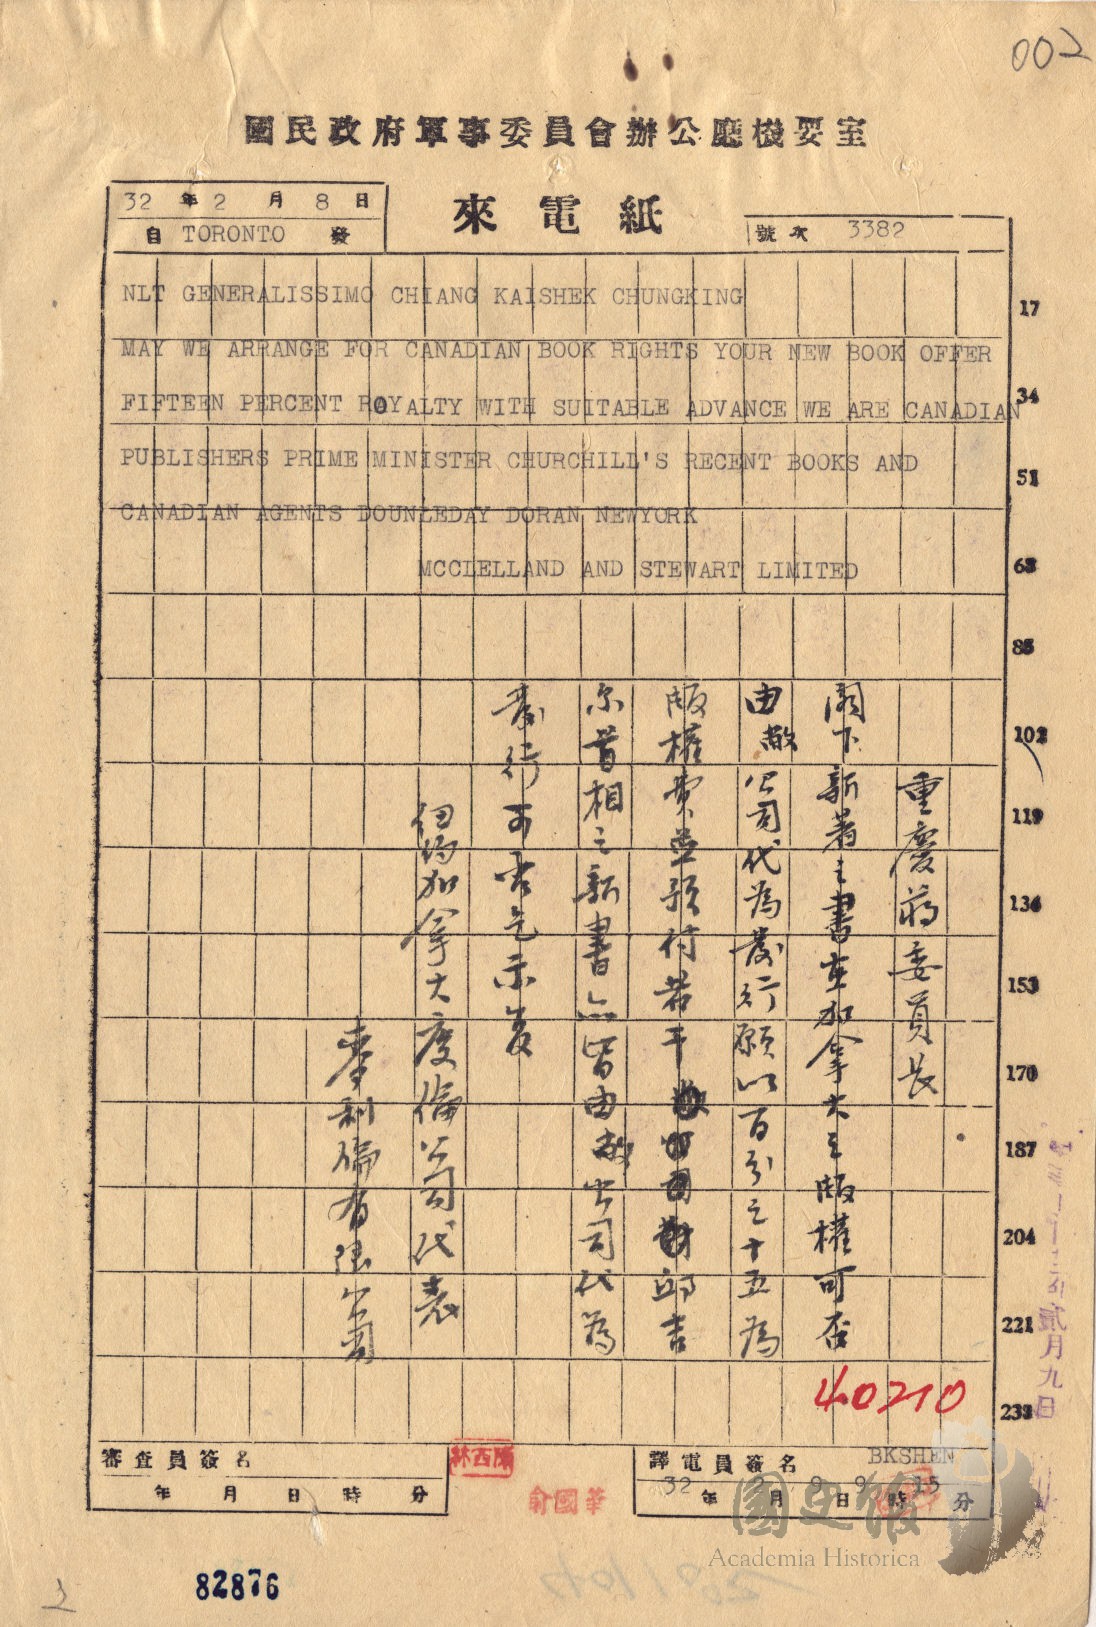 002
國民政府軍事委員會辦公廳機要室
32年2月8日
自 TORONTO 發
來電紙
號次 3382
NLT GENERALISSIMO CHIANG KAISHEK CHUNGKING
MAY WE ARRANGE FOR CANADIAN BOOK RIGHTS YOUR NEW BOOK OFFER
FIFTEEN PERCENT ROYALTY WITH SUITABLE ADVANCE WE ARE CANADIAN
PUBLISHERS PRIME MINISTER CHURCHILL'S RECENT BOOKS AND
CANADIAN AGENTS DOUNLEDAY DORAN NEWYORK
MCCLELLAND AND STEWART LIMITED
17
34
51
68
85
102
119
136
153
170
187
204
221
238
重慶蔣委員長
閣下新著之書在加拿大之版權可否
由敝公司代為發行願以百分之十五為
版權費並預付若干邱吉
尔首相之新書亦皆由敝公司代為
發行可否乞示復
纽约加拿大度倫公司代表
麥利倫有限公司
40210
貳月九日
審查員簽名
年月日時分
陽西林
俞國華
譯電員簽名 BKSHEN
32年2月9日9時15分
國史館
Academia Historica
82876